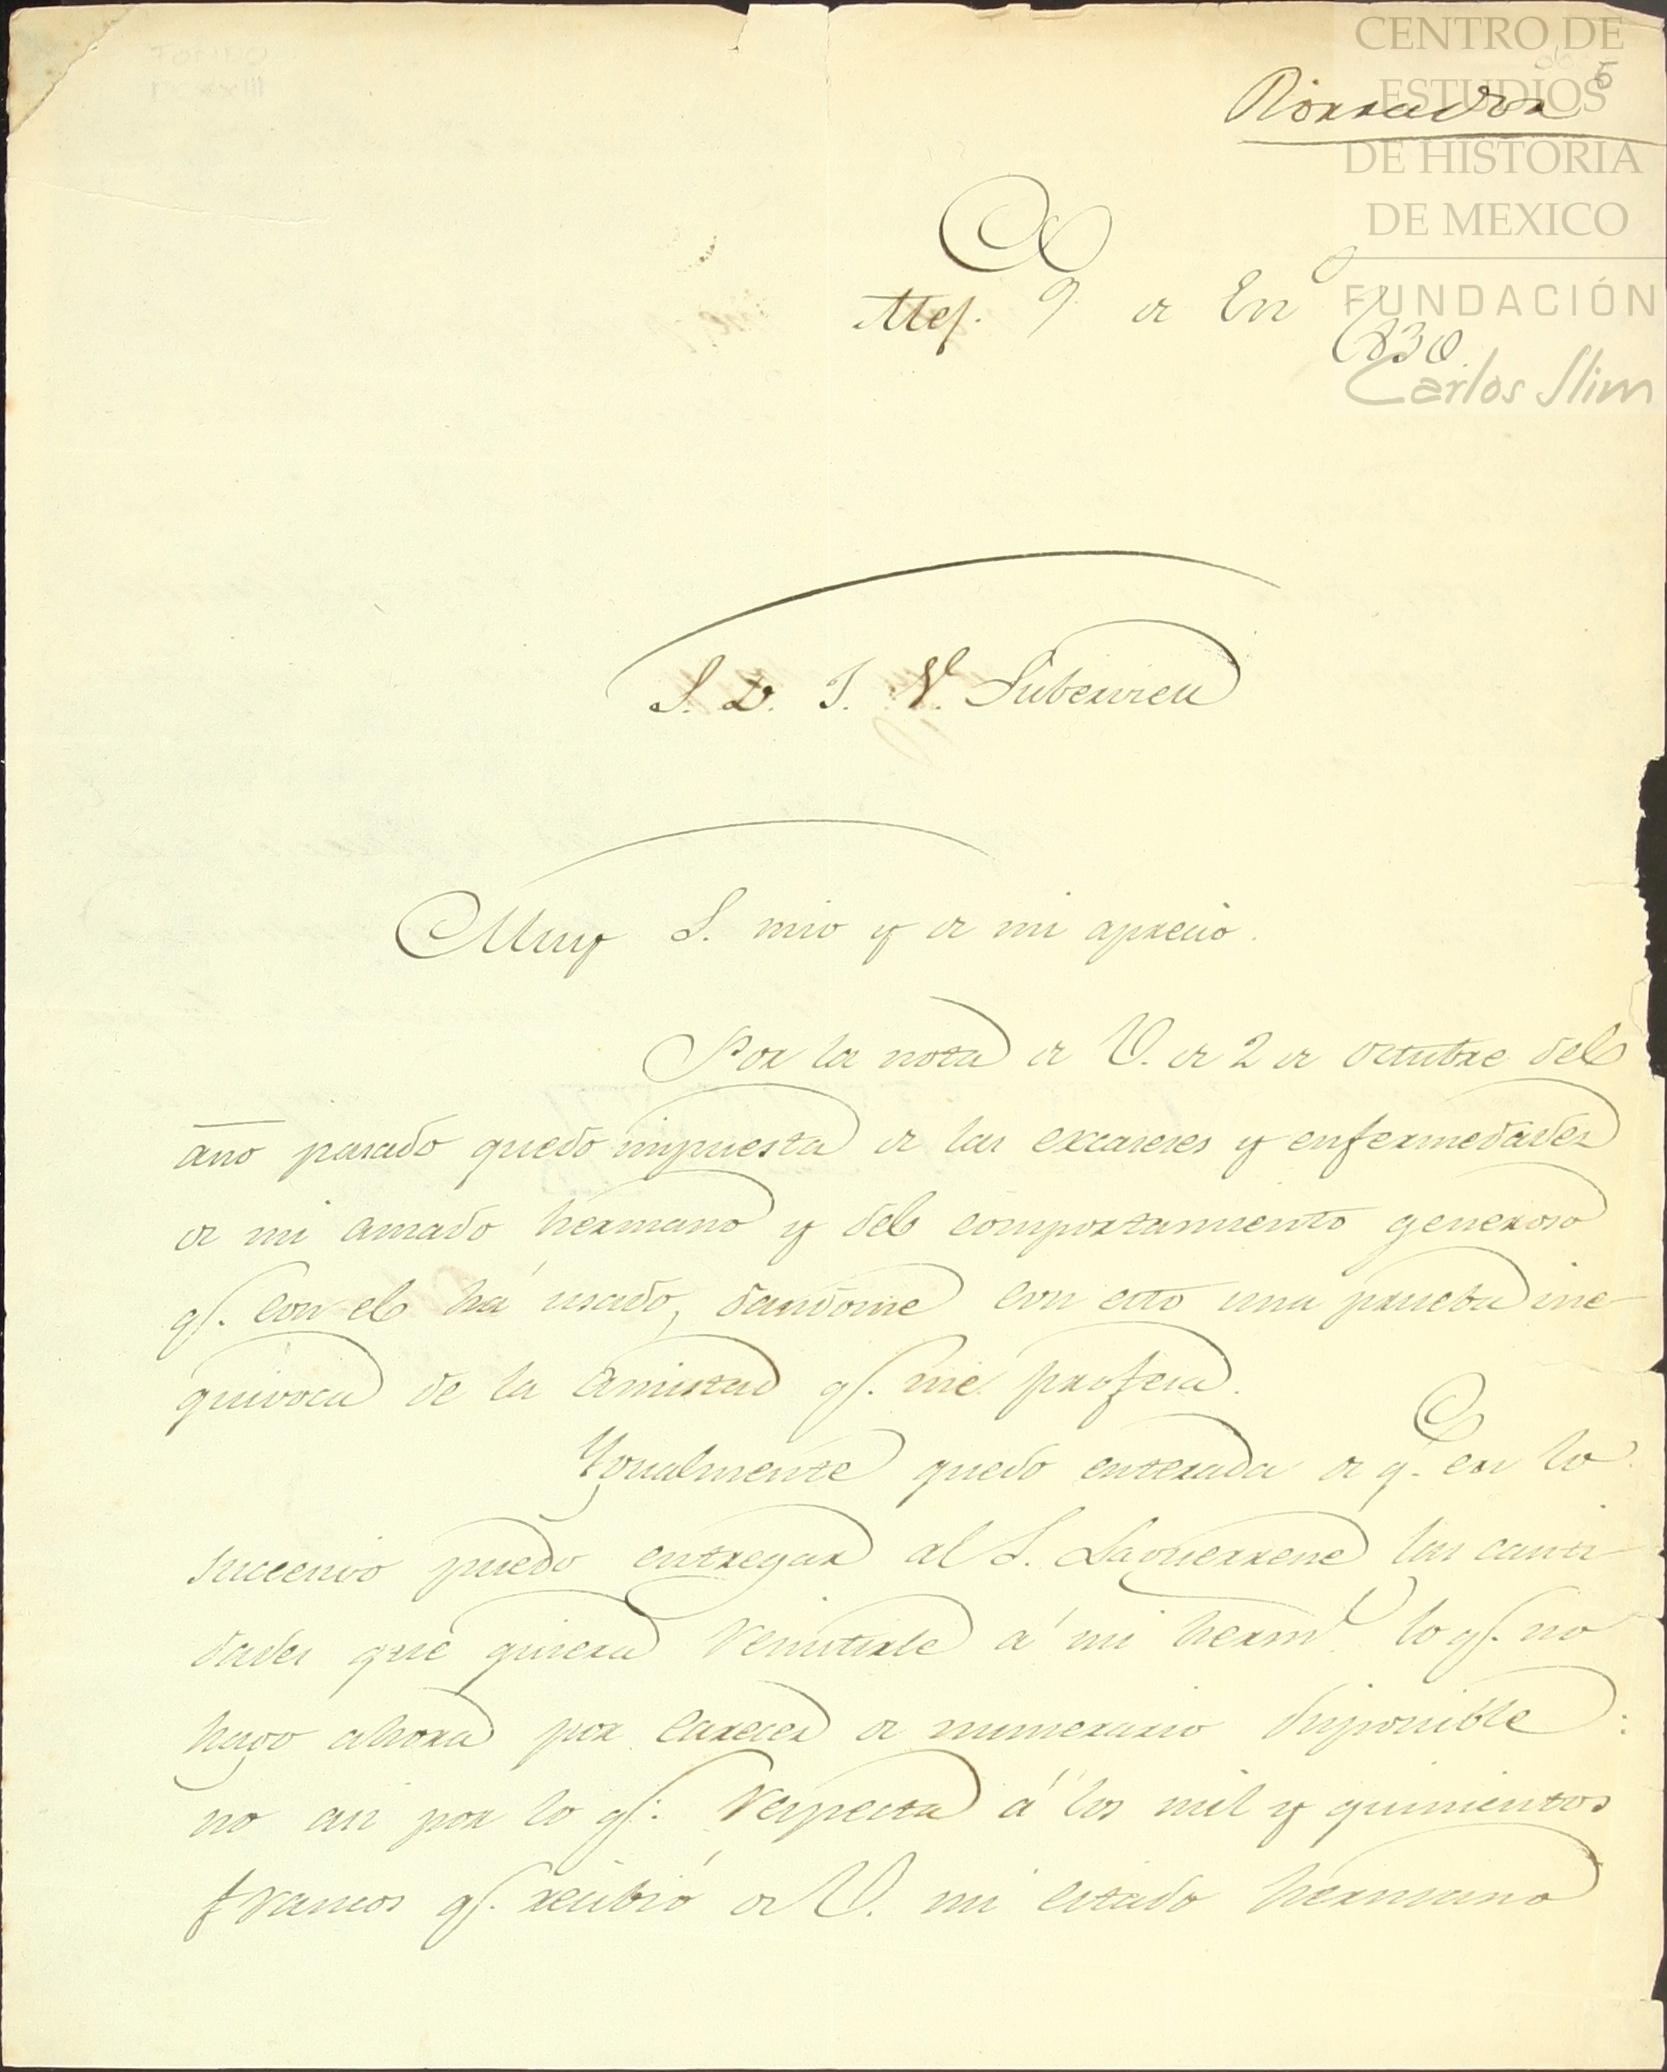 CENTRO DE
ESTUDIOS
DE HISTORIA
DE MEXICO
FUNDACIÓN
Carlos Slim
6
Borrador
Mej. 9 de En.º
1830.
S. D. J. V. Subervieu
Muy S. mio y de mi aprecio.
Por la nota de V. de 2 de octubre del
año pasado quedo impuesta de las excaseses y enfermedades
de mi amado hermano y del comportamiento generoso
q.e con el há usado, dandome con esto una prueba ine-
quivoca de la amistad q.e me profesa.
Ygualmente quedo enterada de q.e en lo
succesivo puedo entregar al S. Laguerrene las canti
dades que quiera remitirle á mi herm.º lo q.e no
hago ahora por carecer de numerario disponible:
no asi por lo q.e respecta á los mil y quinientos
francos q.e recibió de V. mi citado hermano